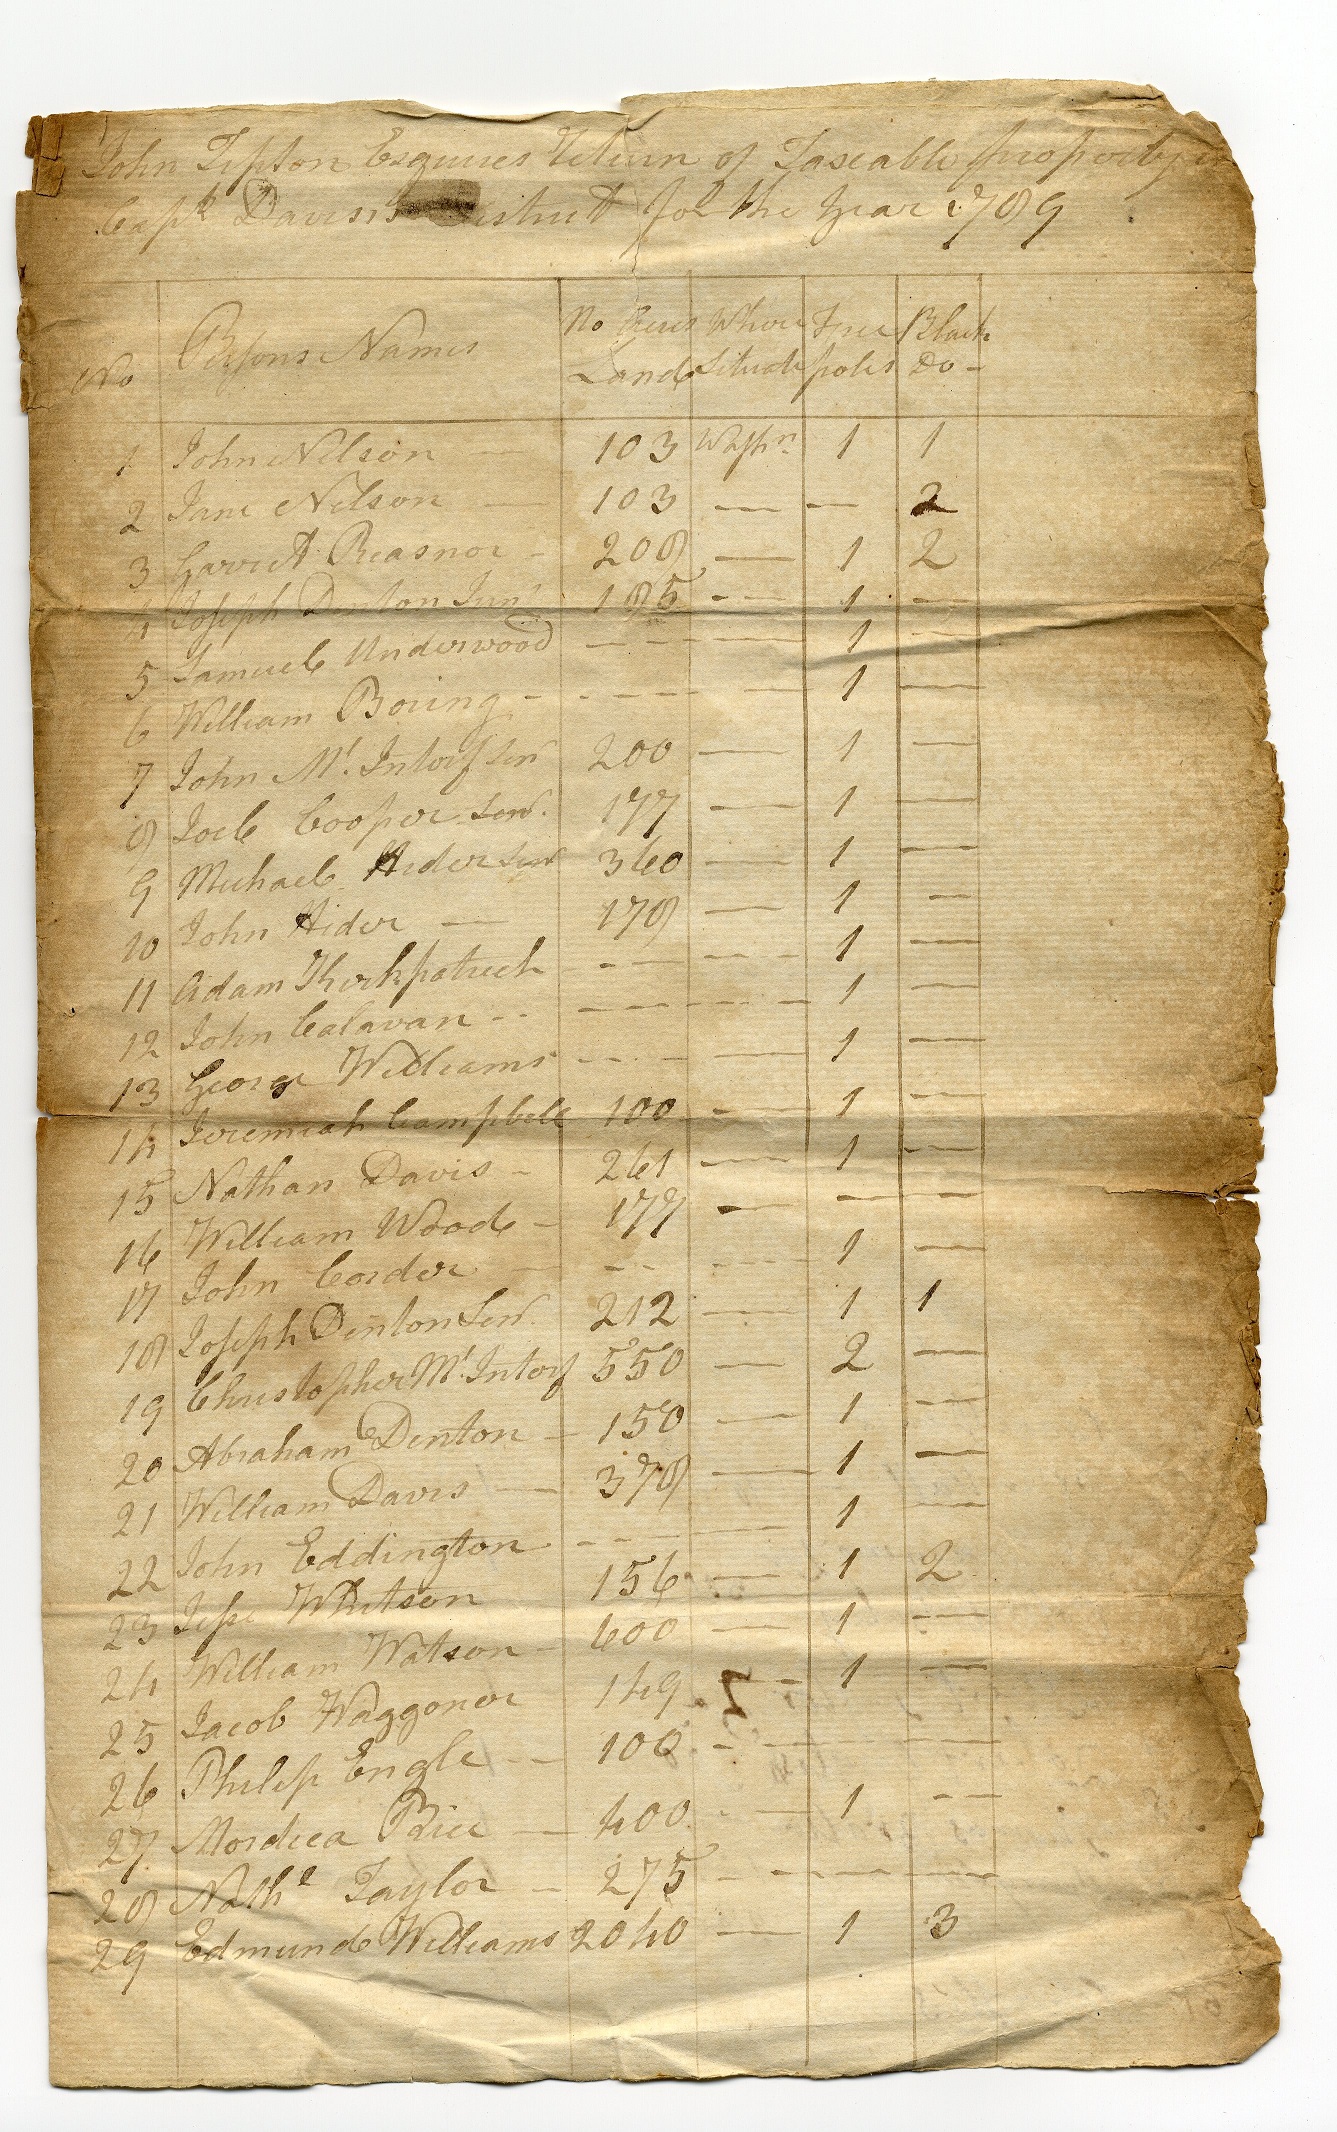 John Tipton Esquires Return of Taxeable property in
Capt Davis's District for the Year 1789
No Persons Names No Acres Land Where Situate Free poles Black Do -
1 John Nelson — 103 Washn. 1 1
2 Jane Nelson — 103 — — 2
3 Garret Reasnor - 208 — 1 2
4 Joseph Denton Junr 185 - - 1 —
5 Samuel Underwood — — — 1 —
6 William Boring - - - - - — 1 —
7 John Mc. Intosh Senr 200 — 1 —
8 Joel Cooper Senr. 177 — 1 —
9 Michael Hider Senr 360 — 1 —
10 John Hider — 178 — 1 —
11 Adam Kerkpatrick - - — - - - 1 —
12 John Calavan - - - - - - - - 1 —
13 George Williams - - - - — 1 —
14 Jeremiah Campbell 100 - — 1 —
15 Nathan Davis - 261 - — 1 —
16 William Wood - 177 - — —
17 John Corder — - - - - - 1 —
18 Joseph Denton Senr. 212 — 1 1
19 Christopher Mc. Intosh 550 — 2 —
20 Abraham Denton - 150 — 1 —
21 William Davis — 378 — 1 —
22 John Eddington - - - - — 1 —
23 Jesse Whitson 156 — 1 2
24 William Watson - 600 — 1 —
25 Jacob Waggoner 149 - - 1 —
26 Philip Engle - - 100 - - — —
27 Mordica Price — 400 - — 1 - -
28 Nathl Taylor - 275 - — — —
29 Edmund Williams 2040 — 1 3